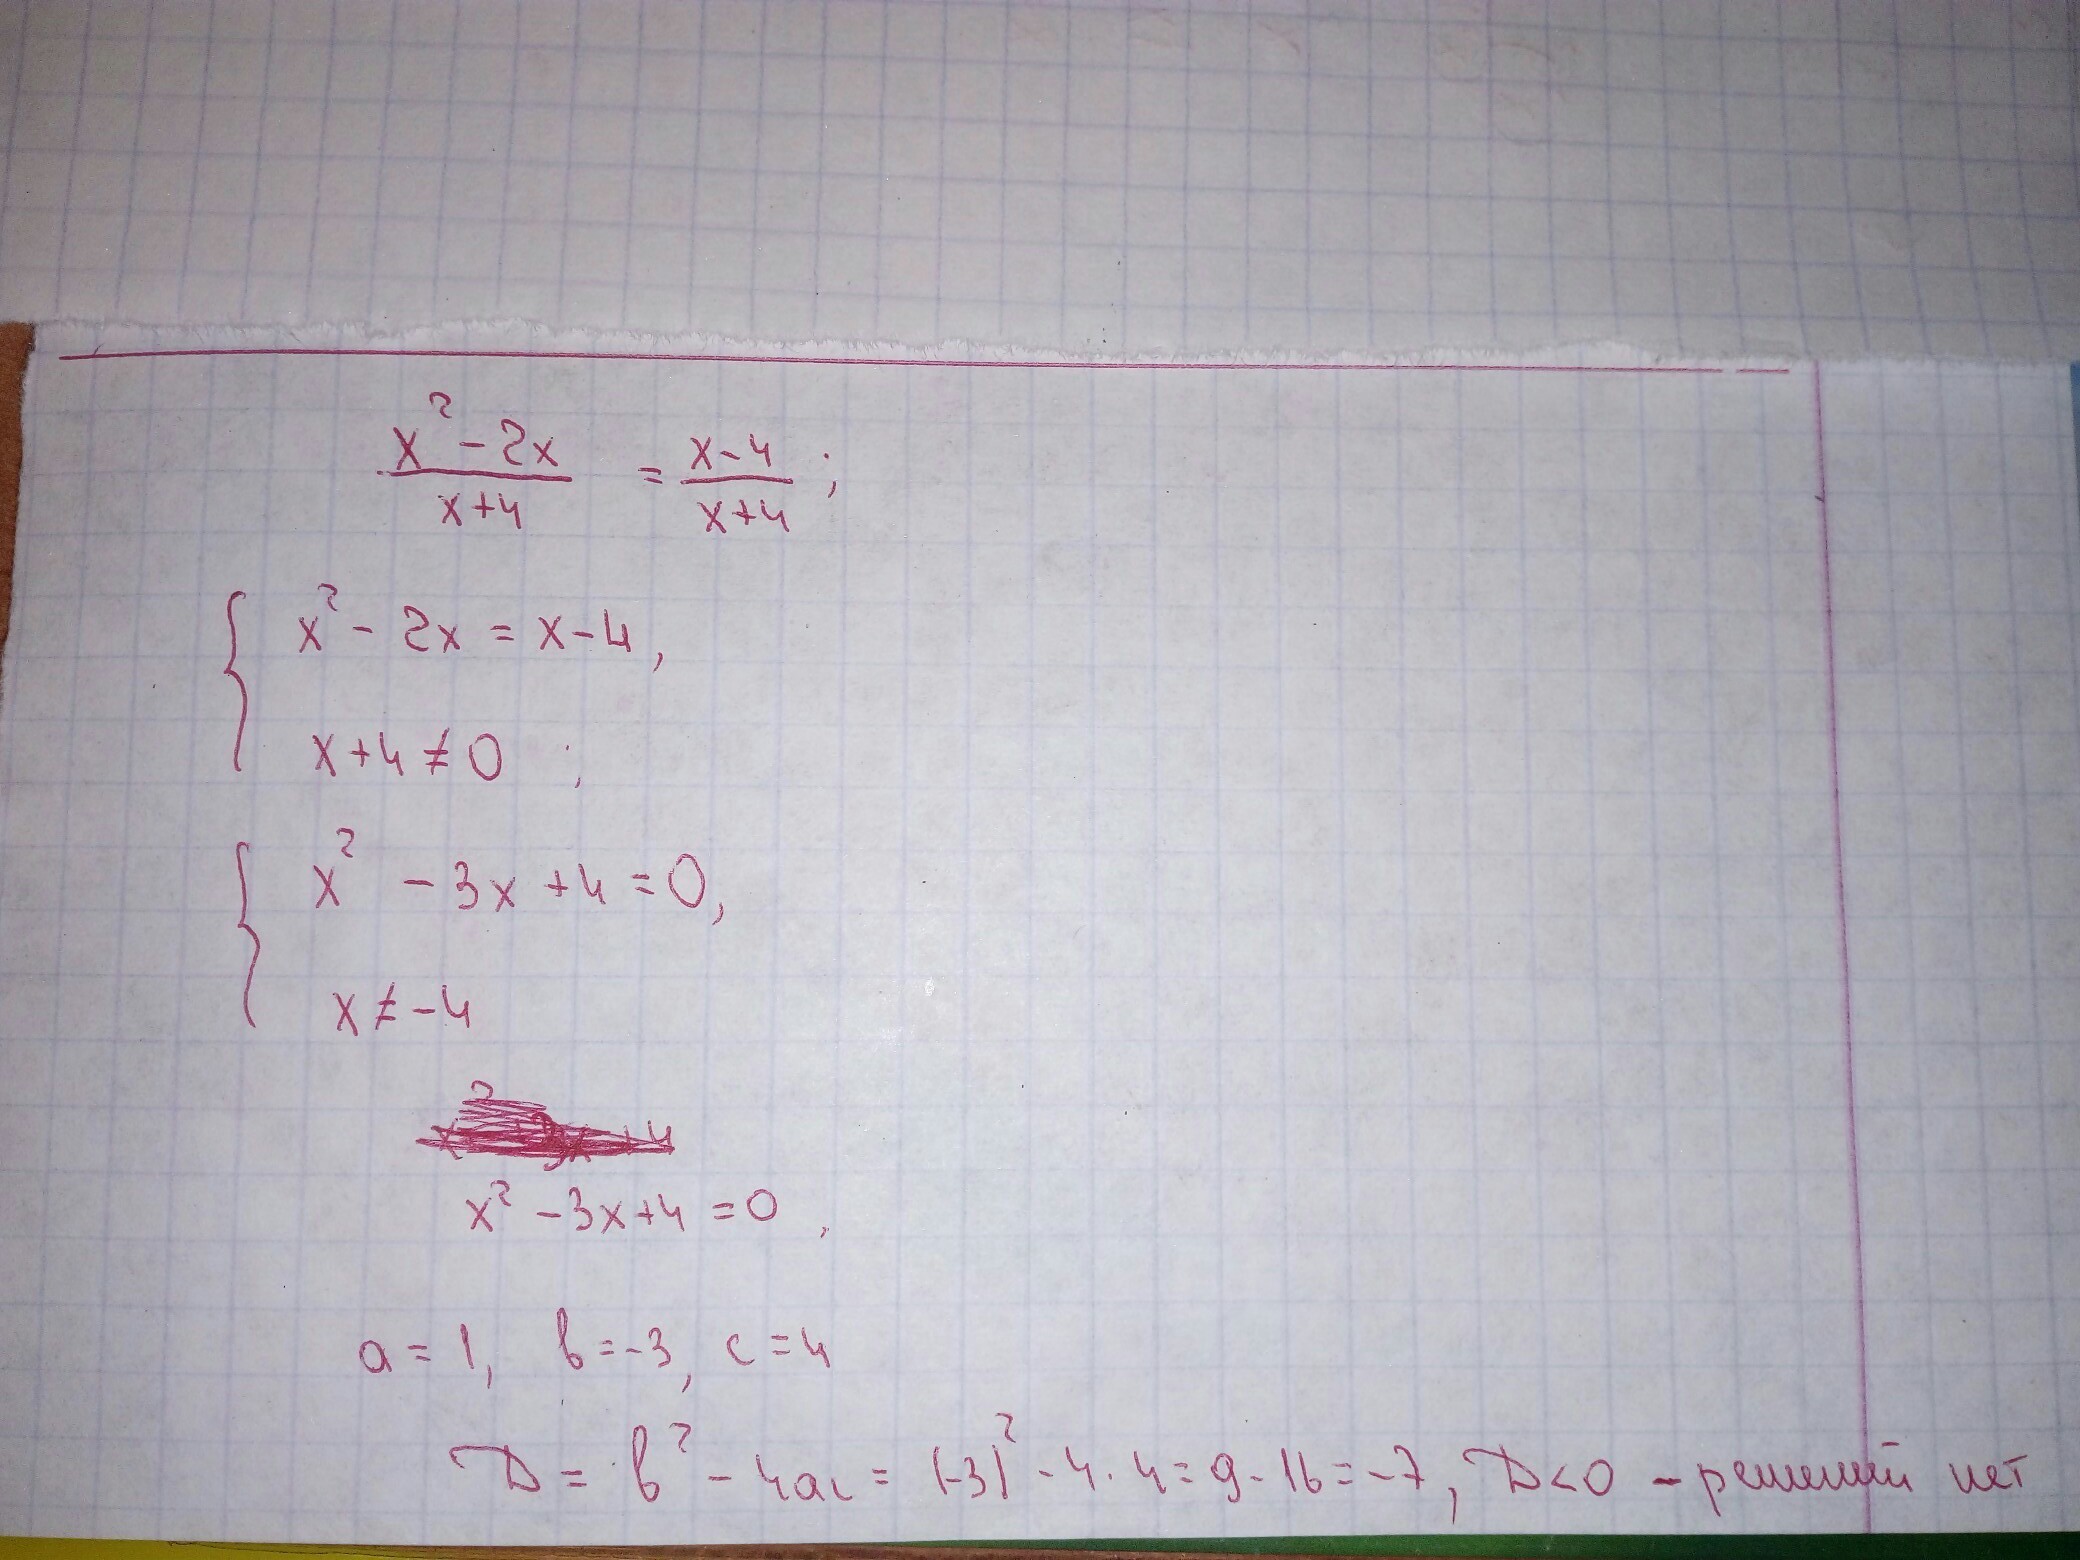 (x² - 2x)/(x+4) = (x-4)/(x+4) ;
{ x² - 2x = x - 4,
x+4 ≠ 0 ;
{ x² - 3x + 4 = 0,
x ≠ -4
x² - 3x + 4 = 0 ,
a = 1, b = -3, c = 4
D = b² - 4ac = (-3)² - 4·4 = 9 - 16 = -7, D<0 - решений нет